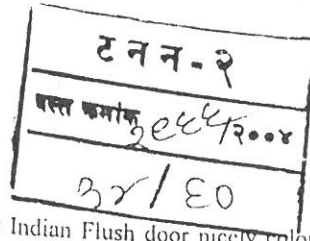 ट न न - २
दस्त क्रमांक २९६६/२००४
३४ / ६०
Indian Flush door nicely color